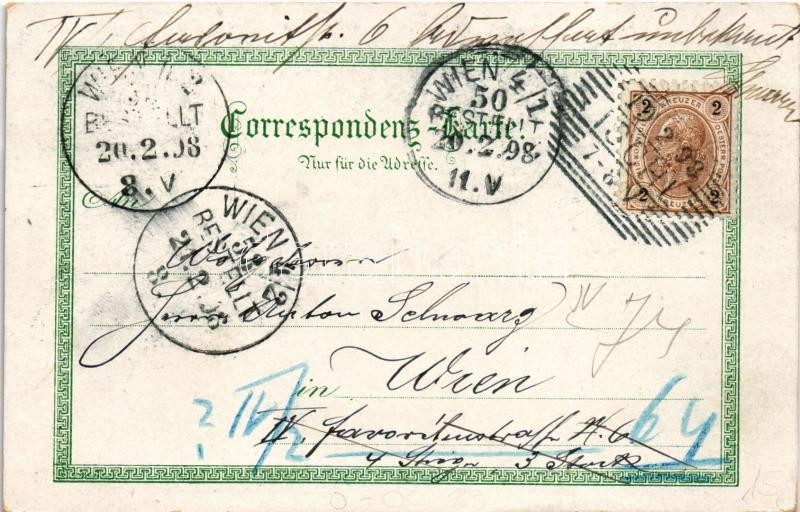 IV, Favoritstr. 6 Adressat unbekannt
WIEN
BESTELLT
20.2.98
8.V
WIEN 4/1
50
BESTELLT
20.2.98
11.V
Correspondenz-Karte.
Nur für die Adresse.
2 KREUZER 2
2 KREUZER 2
7-8
WIEN
BESTELLT
Wohlgeboren
Herrn Anton Schwarz
IV 74
in Wien
? IV/2
IV, Favoritenstraße N. 6
64
4 Stiege 3 Stock